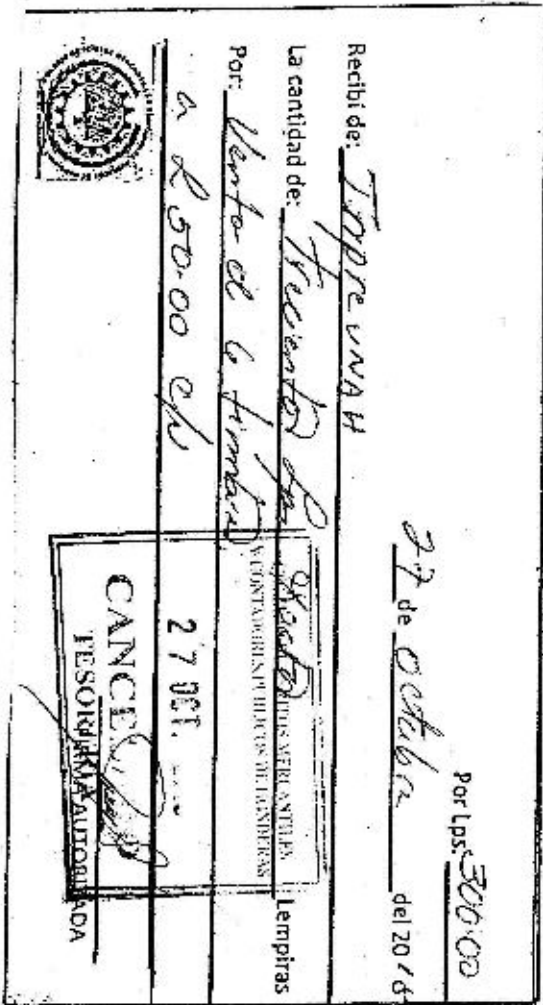 Por Lps. 300.00
27 de octubre del 2016
Recibi de: Inpreunah
La cantidad de: Trecientos Lps exactos Lempiras
Por: Venta de 6 timbres
a L 50.00 c/u
PERITOS MERCANTILES
Y CONTADORES PUBLICOS DE HONDURAS
27 OCT.
CANCE
TESORERIA
AUTORIZADA